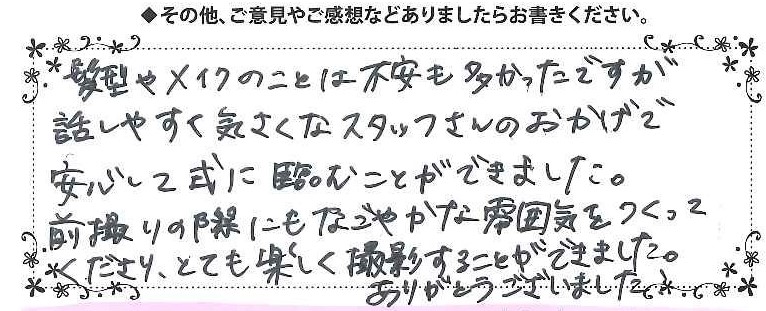 ◆その他、ご意見やご感想などありましたらお書きください。
髪型やメイクのことは不安も多かったですが
話しやすく気さくなスタッフさんのおかげで
安心して式に臨むことができました。
前撮りの際にもなごやかな雰囲気をつくって
くださり、とても楽しく撮影することができました。
ありがとうございました!